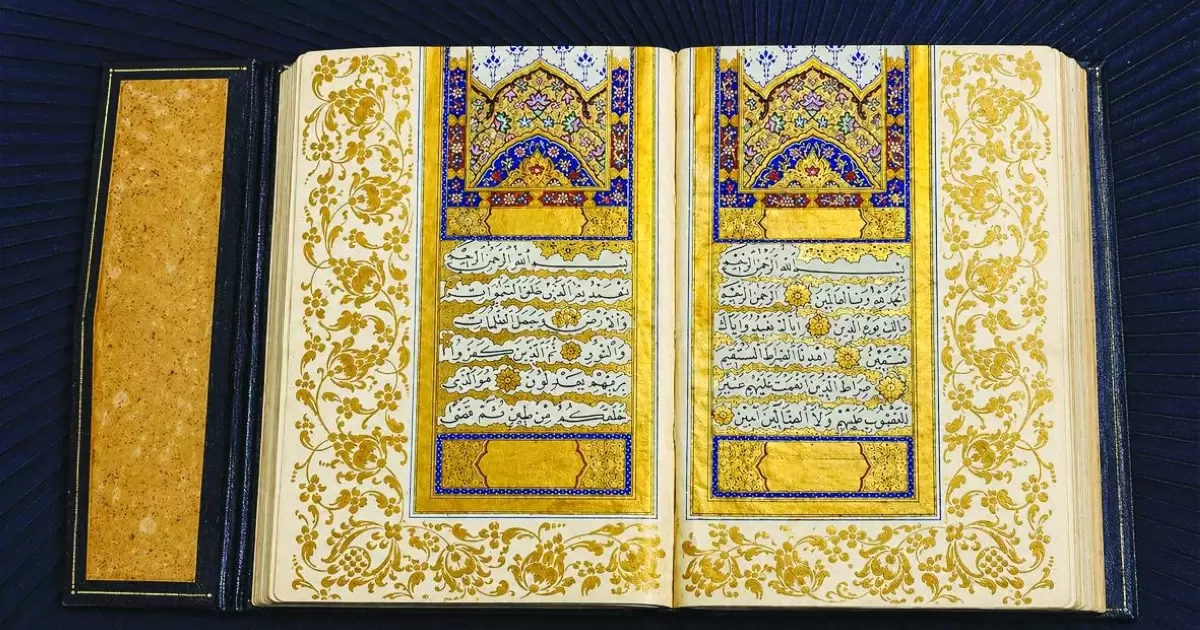 بسم الله الرحمن الرحيم
الحمد لله رب العالمين الرحمن الرحيم
مالك يوم الدين اياك نعبد واياك
نستعين اهدنا الصراط المستقيم
صراط الذين انعمت عليهم غير
المغضوب عليهم ولا الضالين امين
بسم الله الرحمن الرحيم
الحمد لله الذي خلق السموات
والارض وجعل الظلمات
والنور ثم الذين كفروا
بربهم يعدلون هو الذي
خلقكم من طين ثم قضى